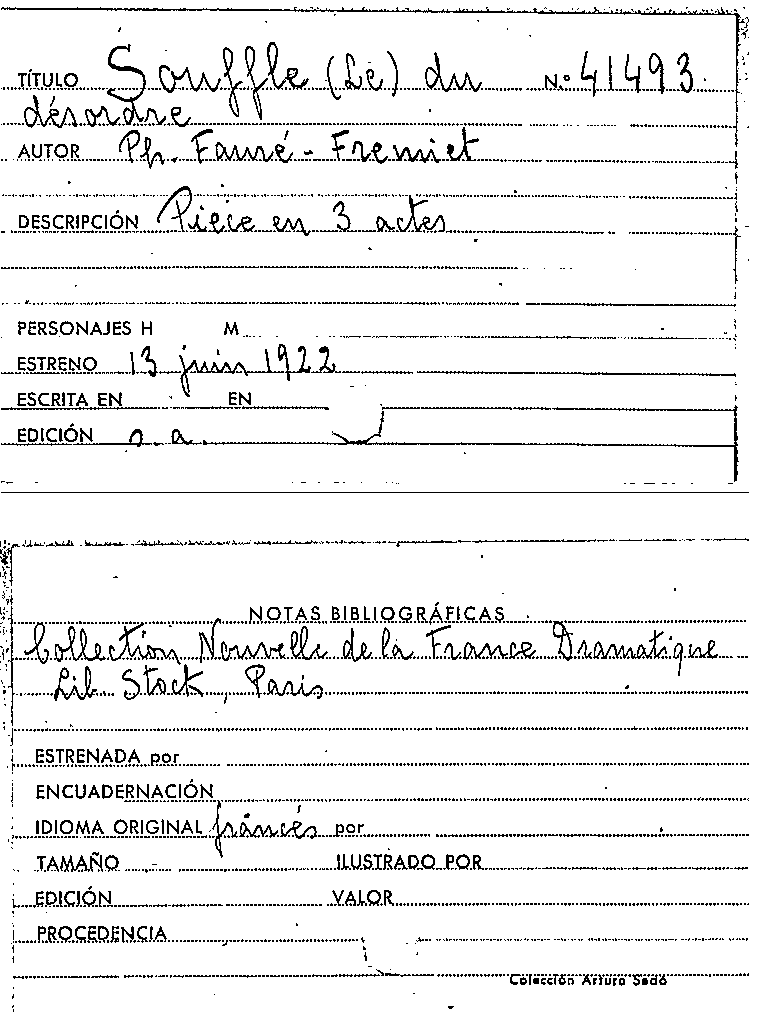 TÍTULO Souffle (Le) du N.º 41493.
désordre
AUTOR Ph. Fauré-Fremiet
DESCRIPCIÓN Pièce en 3 actes
PERSONAJES H M
ESTRENO 13 juin 1922
ESCRITA EN EN
EDICIÓN s.a.
NOTAS BIBLIOGRÁFICAS
Collection Nouvelle de la France Dramatique
Lib. Stock, Paris
ESTRENADA por
ENCUADERNACIÓN
IDIOMA ORIGINAL francés por
TAMAÑO ILUSTRADO POR
EDICIÓN VALOR
PROCEDENCIA
Colección Arturo Sedó